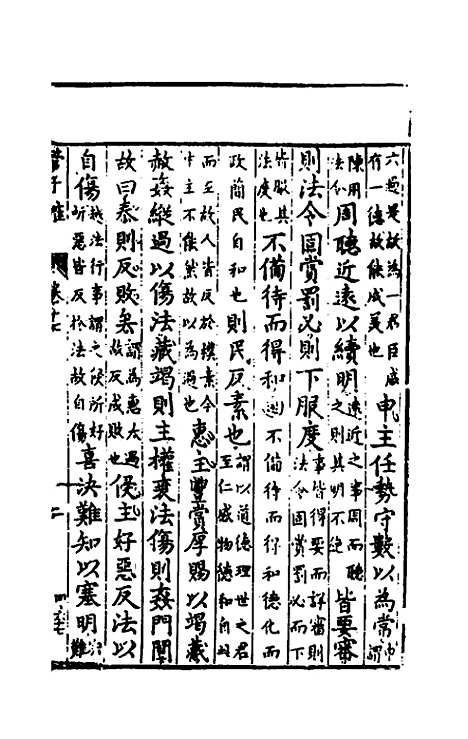 六過是故為一君臣咸
有一德故能成美也
申主任勢守數以為常
申謂
陳用
法
周聽近遠以續明
遠近之事周而聽
之則其明不絕
皆要審
則法令固賞罰必則下服度
事皆得要而詳審則
法令固賞罰必而下
皆服其
法度也
不備待而得和
則不備待而得和德化而
政簡民自和也
則民反素也
謂以道德理世之君
至仁感物德和自
而至故人皆反於樸素今
主不能然故以為過也
惠主豐賞厚賜以竭藏
赦姦縱過以傷法藏竭則主權衰法傷則姦門闓
故曰泰則反敗矣
謂為惠太過
故反成敗也
侵主好惡反法以
自傷
越法行事謂之侵所好
所惡皆反於法故自傷
喜決難知以塞明
管子
卷十七